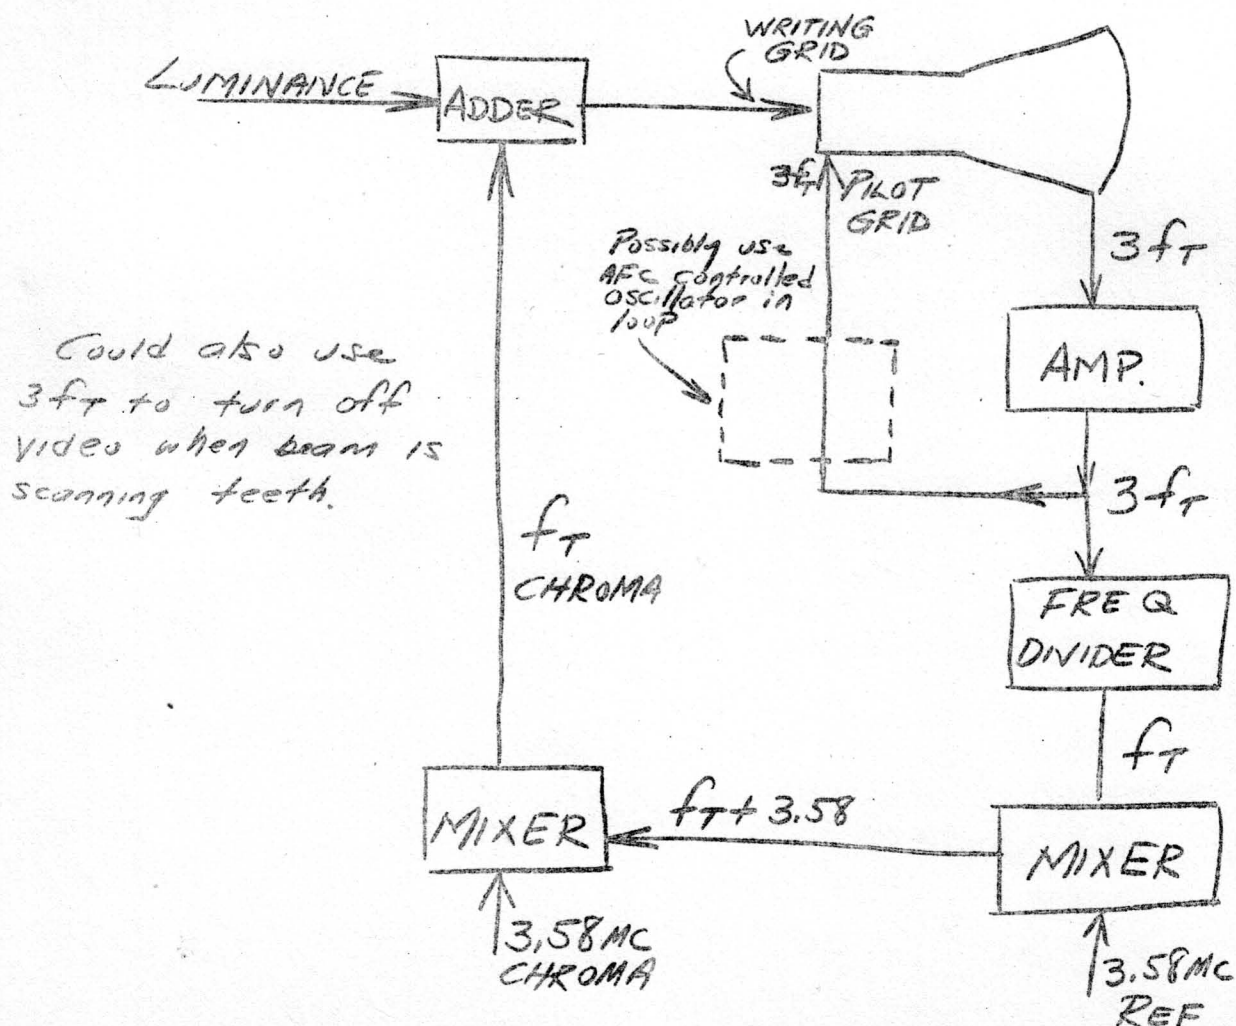 WRITING
GRID
LUMINANCE
ADDER
3fT
PILOT
GRID
3fT
Possibly use
AFC controlled
oscillator in
loop
AMP.
Could also use
3fT to turn off
video when beam is
scanning teeth.
3fT
fT
CHROMA
FREQ
DIVIDER
fT
MIXER
fT + 3.58
MIXER
3.58MC
CHROMA
3.58MC
REF